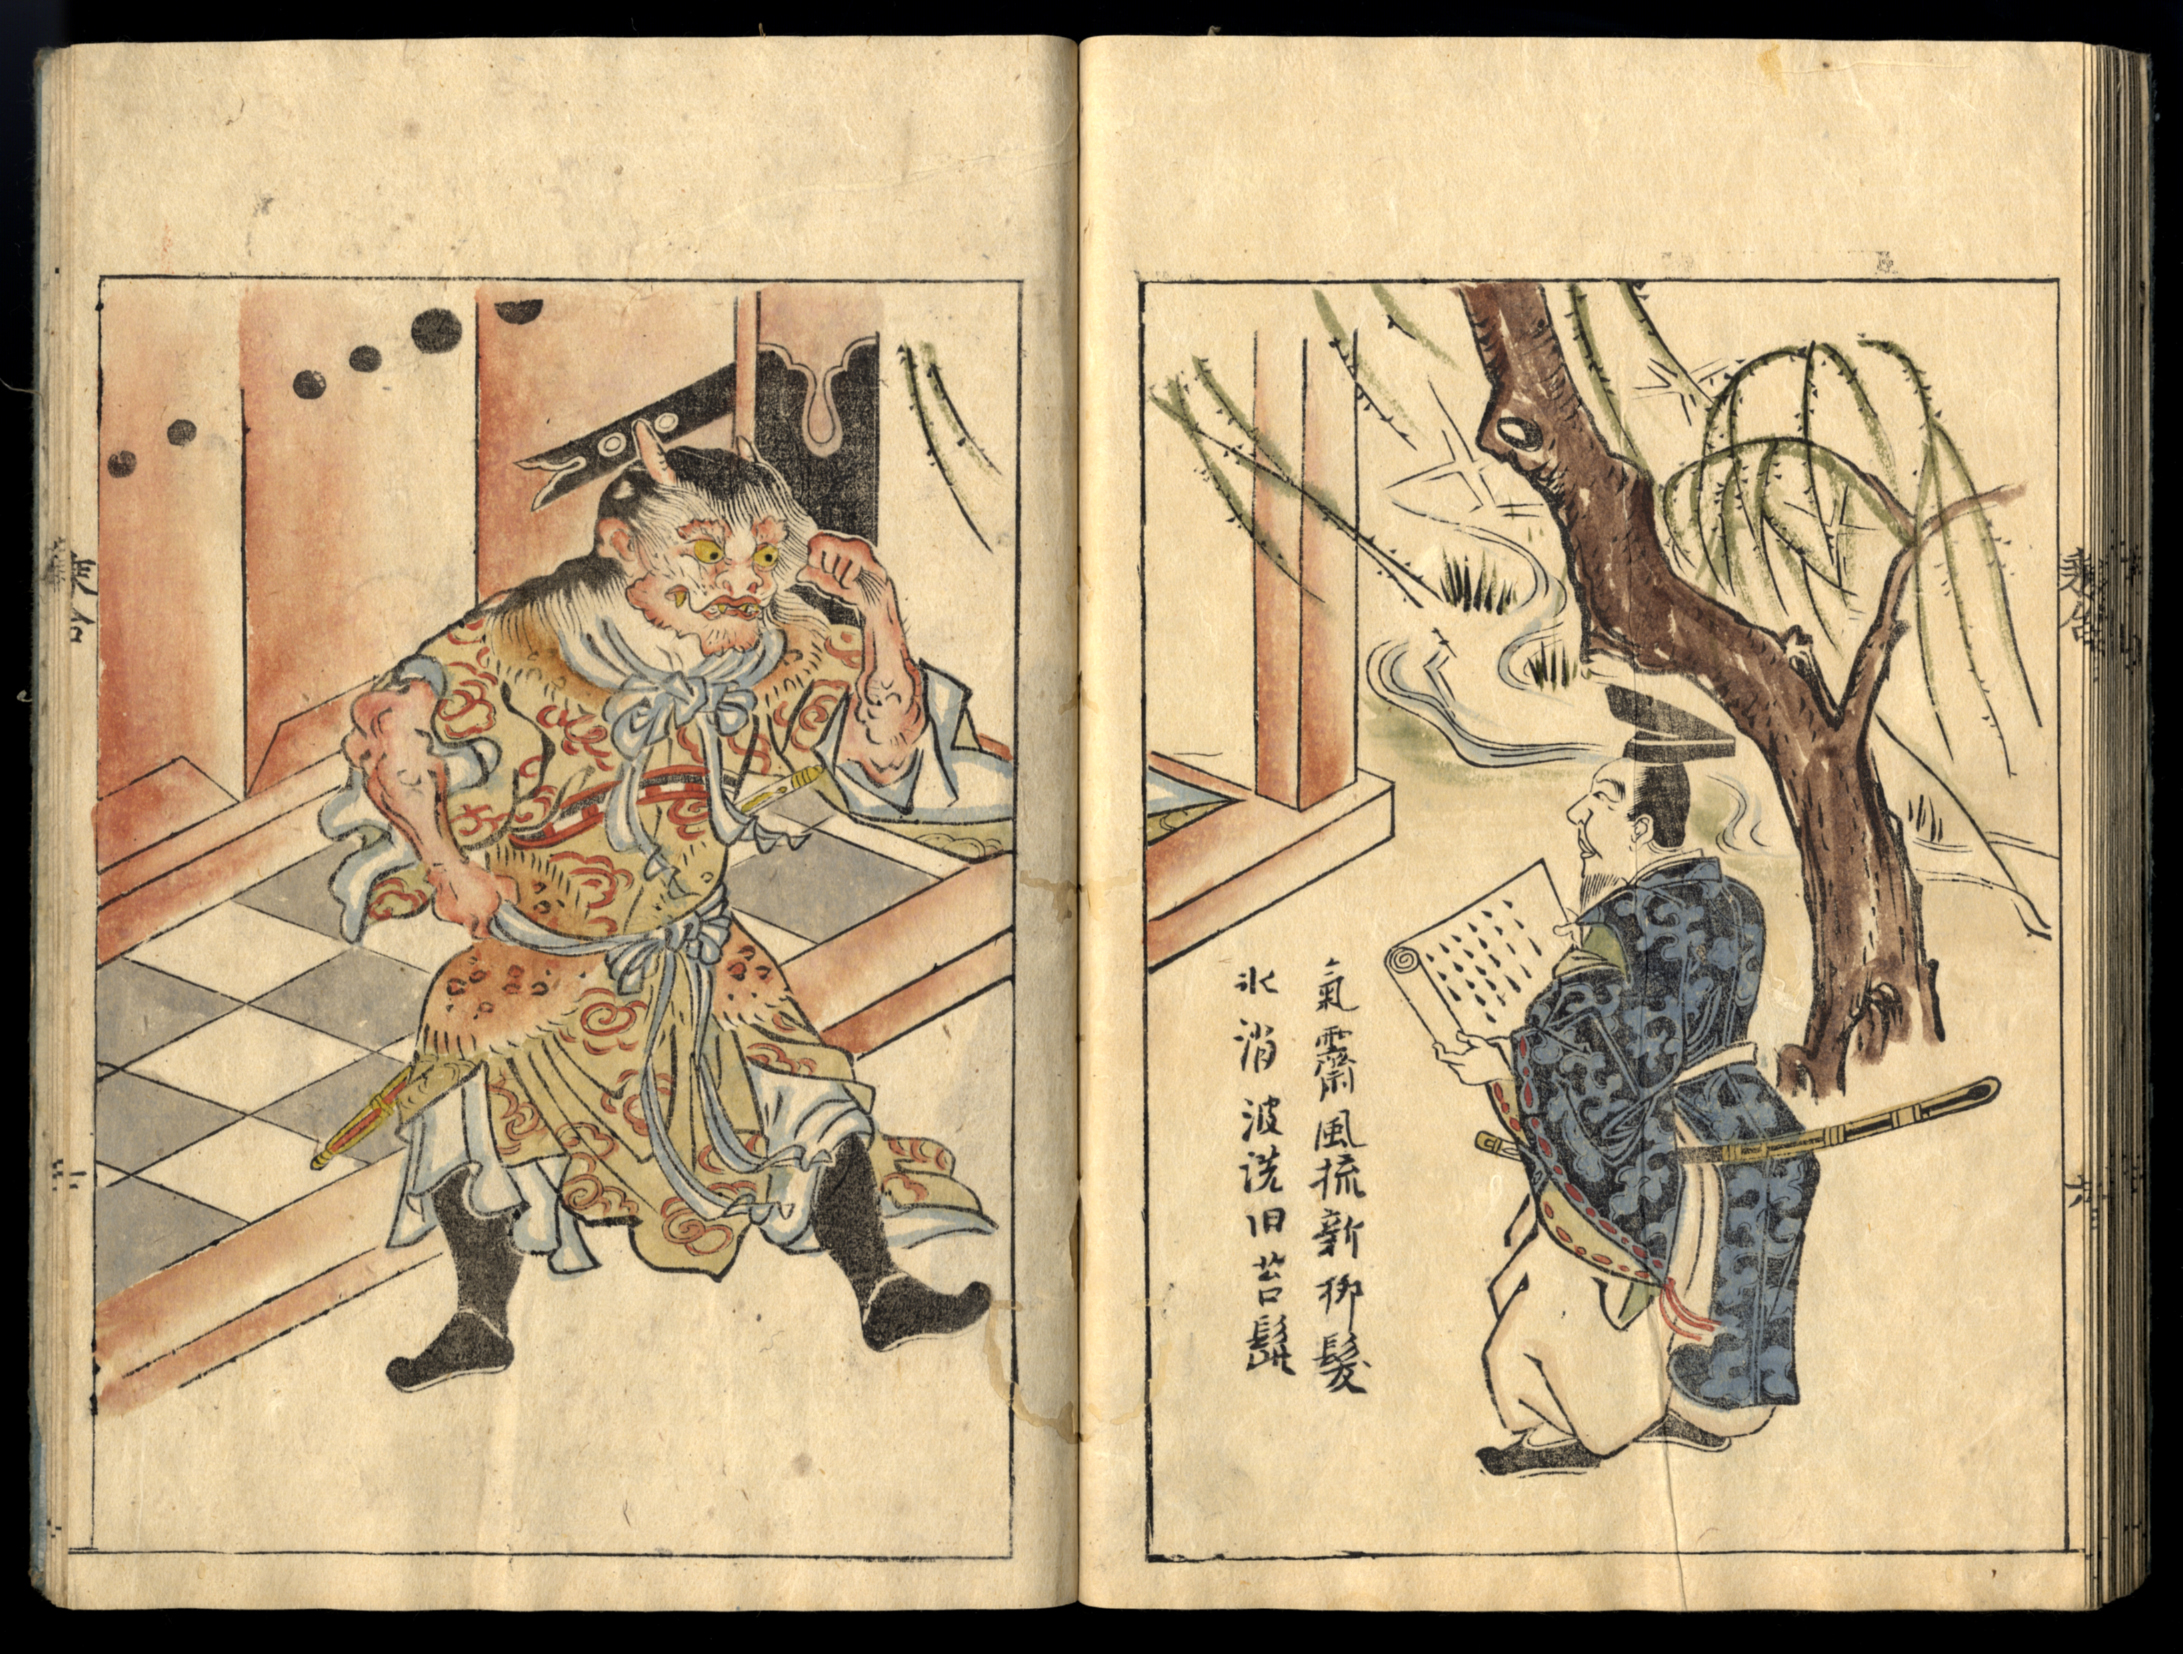 氣霽風梳新栁髮
氷消波洗旧苔鬚
乘合